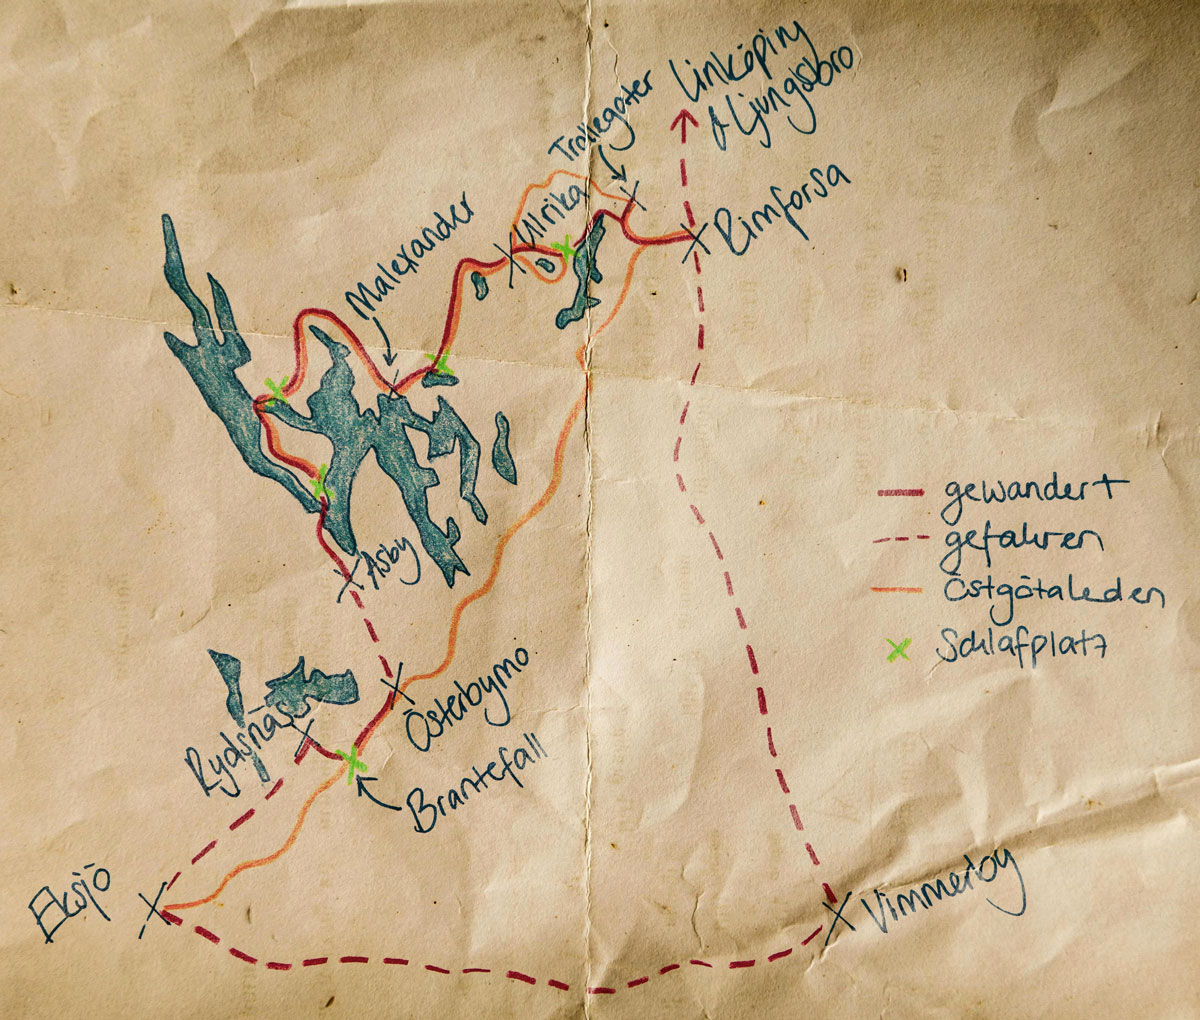 Linköping
& Ljungsbro
Trollegater
Rimforsa
Ulrika
Malexander
Asby
Österbymo
Rydsnäs
Brantefall
Eksjö
Vimmerby
gewandert
gefahren
Östgötaleden
Schlafplatz